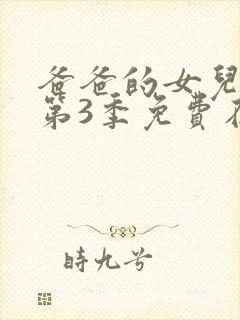 爸爸的女兒
第3季免費在
時九兮